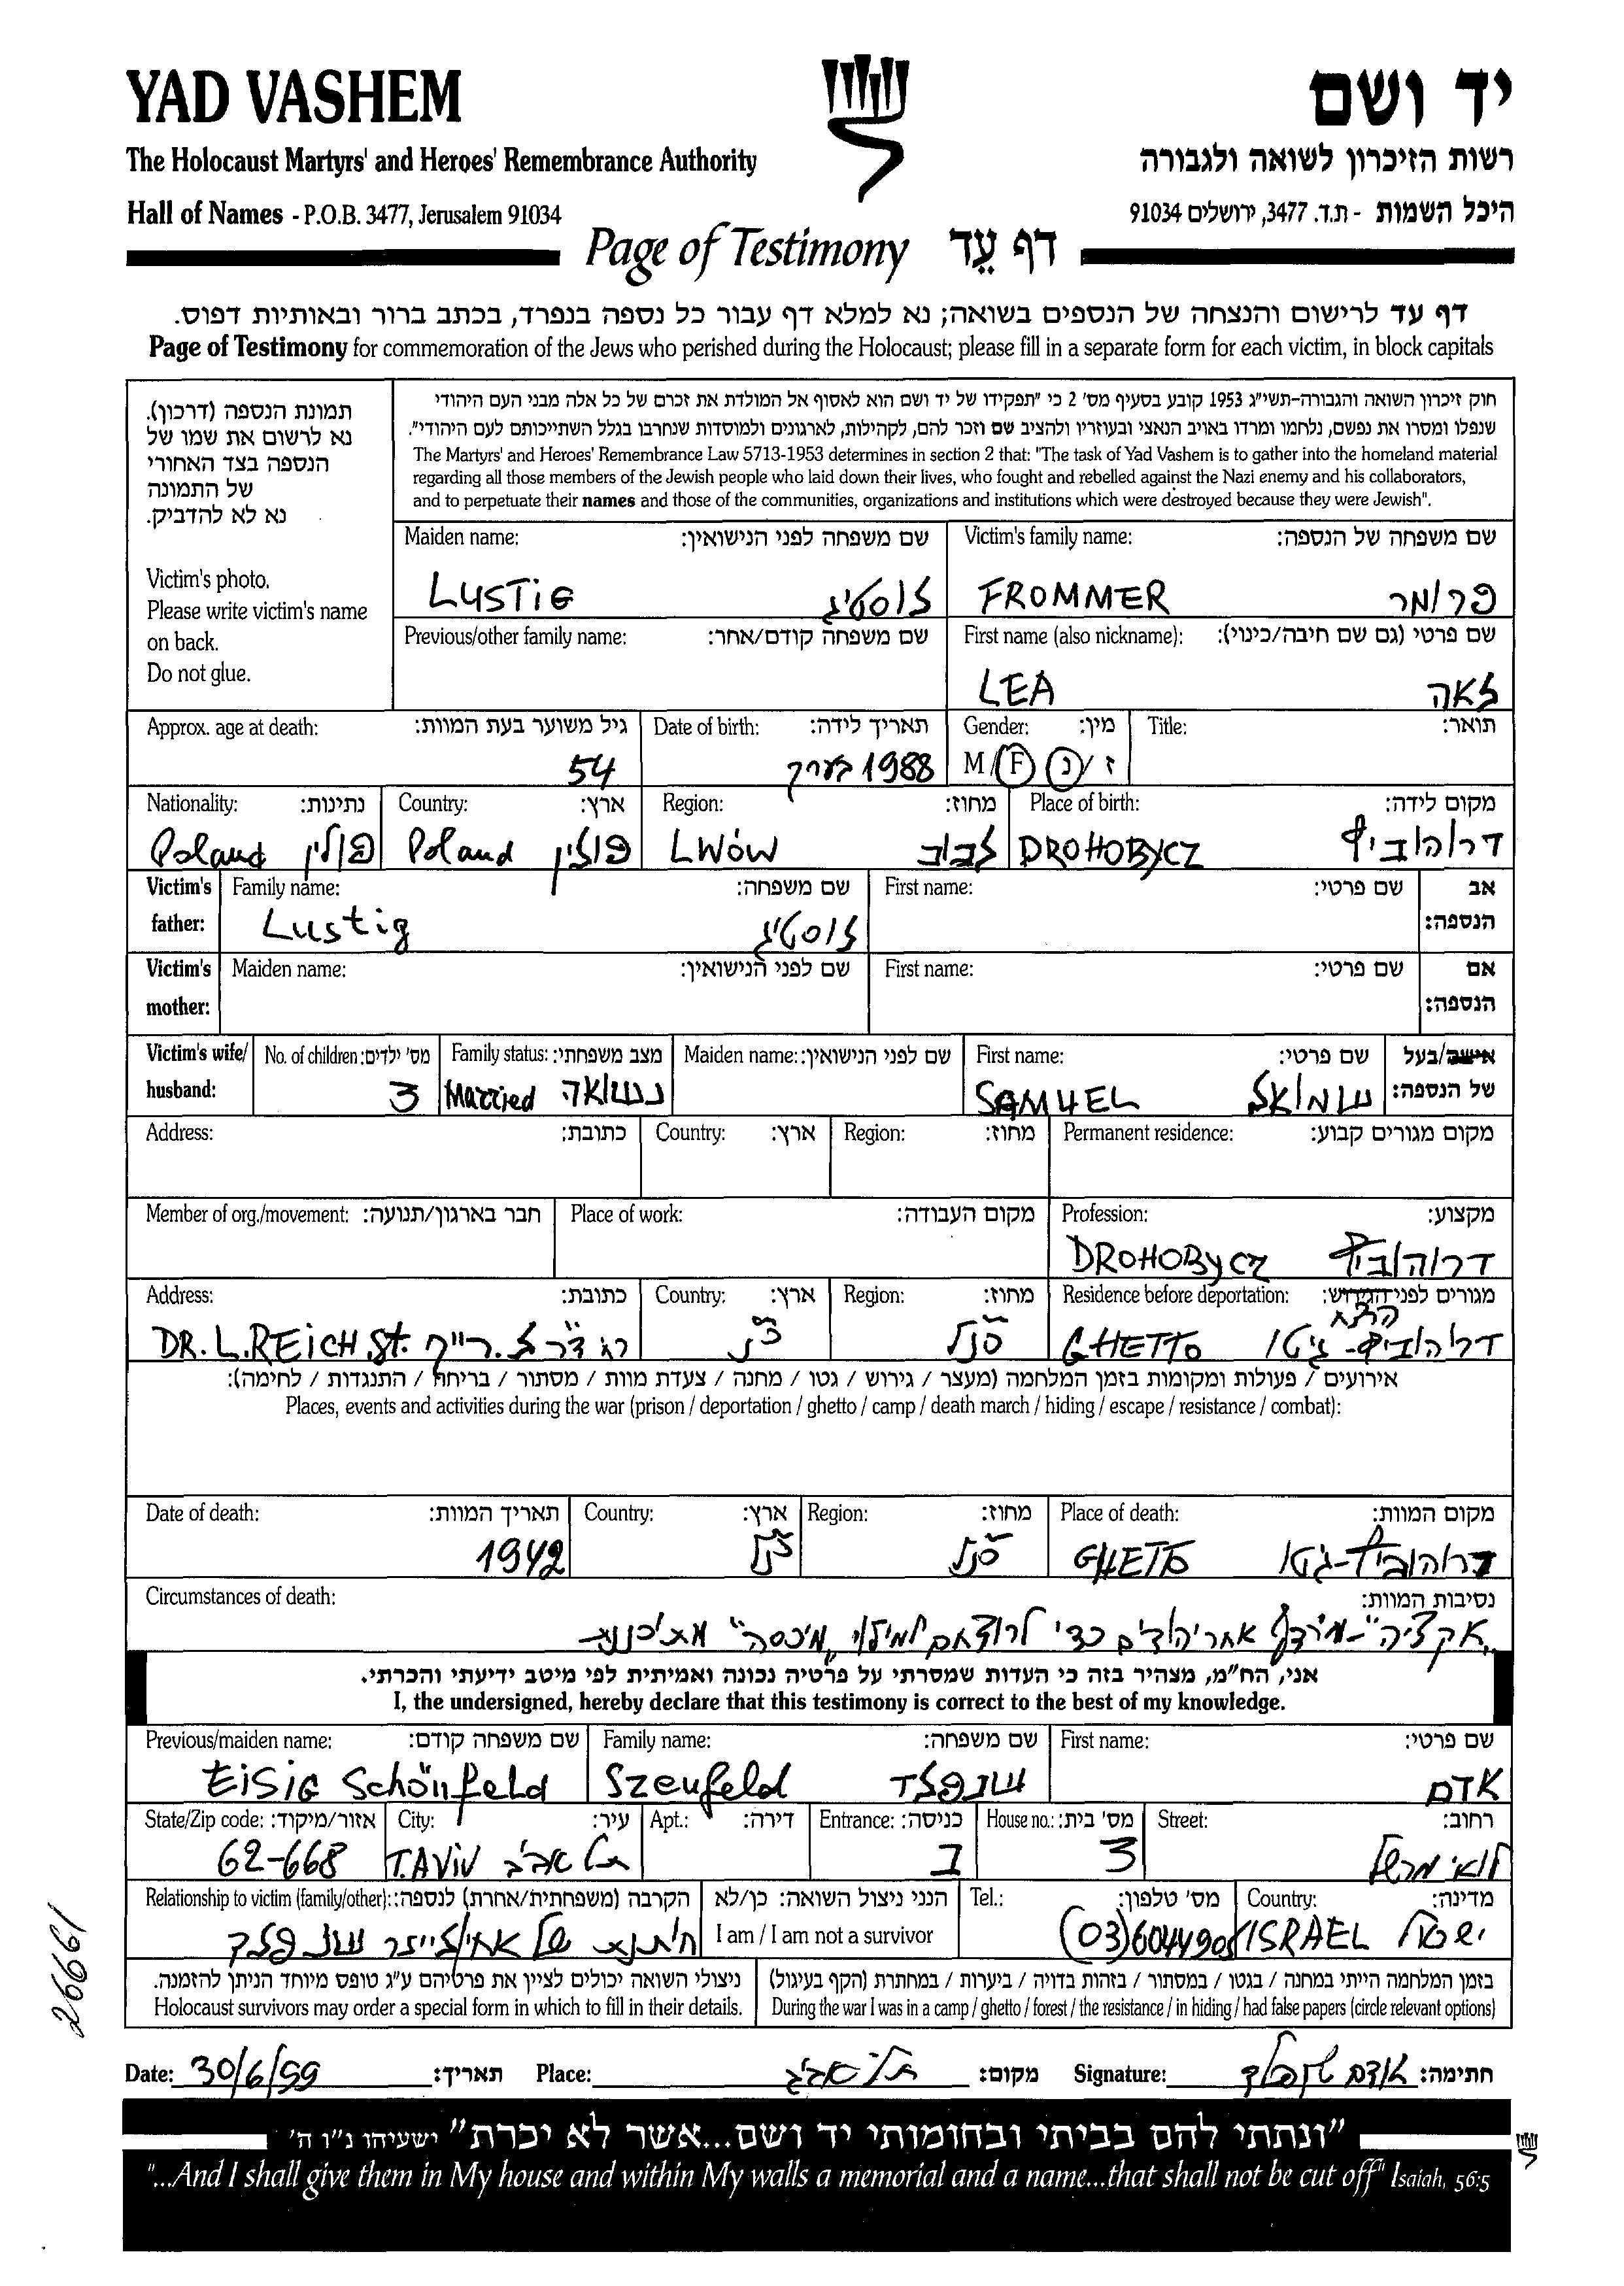 YAD VASHEM
יד ושם
The Holocaust Martyrs' and Heroes' Remembrance Authority
רשות הזיכרון לשואה ולגבורה
Hall of Names - P.O.B. 3477, Jerusalem 91034
היכל השמות - ת.ד. 3477, ירושלים 91034
Page of Testimony דף עֵד
דף עד לרישום והנצחה של הנספים בשואה; נא למלא דף עבור כל נספה בנפרד, בכתב ברור ובאותיות דפוס.
Page of Testimony for commemoration of the Jews who perished during the Holocaust; please fill in a separate form for each victim, in block capitals
תמונת הנספה (דרכון).
נא לרשום את שמו של
הנספה בצד האחורי
של התמונה
נא לא להדביק.
Victim's photo.
Please write victim's name
on back.
Do not glue.
חוק זיכרון השואה והגבורה-תשי"ג 1953 קובע בסעיף מס' 2 כי "תפקידו של יד ושם הוא לאסוף אל המולדת את זכרם של כל אלה מבני העם היהודי
שנפלו ומסרו את נפשם, נלחמו ומרדו באויב הנאצי ובעוזריו ולהציב שם וזכר להם, לקהילות, לארגונים ולמוסדות שנחרבו בגלל השתייכותם לעם היהודי".
The Martyrs' and Heroes' Remembrance Law 5713-1953 determines in section 2 that: "The task of Yad Vashem is to gather into the homeland material
regarding all those members of the Jewish people who laid down their lives, who fought and rebelled against the Nazi enemy and his collaborators,
and to perpetuate their names and those of the communities, organizations and institutions which were destroyed because they were Jewish".
Maiden name: שם משפחה לפני הנישואין:
LUSTIG לוסטיג
Victim's family name: שם משפחה של הנספה:
FROMMER פרומר
Previous/other family name: שם משפחה קודם/אחר:
First name (also nickname): שם פרטי (גם שם חיבה/כינוי):
LEA לאה
Approx. age at death: גיל משוער בעת המוות:
54
Date of birth: תאריך לידה:
1988 בערך
Gender: מין:
M / F נ / ז
Title: תואר:
Nationality: נתינות:
Poland פולין
Country: ארץ:
Poland פולין
Region: מחוז:
LWÓW לבוב
Place of birth: מקום לידה:
DROHOBYCZ דרוהוביץ
Victim's father: אב הנספה:
Family name: שם משפחה:
Lustig לוסטיג
First name: שם פרטי:
Victim's mother: אם הנספה:
Maiden name: שם לפני הנישואין:
First name: שם פרטי:
Victim's wife/ husband: אישה/בעל של הנספה:
No. of children: מס' ילדים:
3
Family status: מצב משפחתי:
Married נשואה
Maiden name: שם לפני הנישואין:
First name: שם פרטי:
SAMUEL שמואל
Address: כתובת:
Country: ארץ:
Region: מחוז:
Permanent residence: מקום מגורים קבוע:
Member of org./movement: חבר בארגון/תנועה:
Place of work: מקום העבודה:
Profession: מקצוע:
DROHOBYCZ דרוהוביץ
Address: כתובת:
DR. L. REICH St. רח' ד"ר ל. רייך
Country: ארץ:
כנ"ל
Region: מחוז:
כנ"ל
Residence before deportation: מגורים לפני הגירוש:
GHETTO דרוהוביץ-גיטו
אירועים / פעולות ומקומות בזמן המלחמה (מעצר / גירוש / גטו / מחנה / צעדת מוות / מסתור / בריחה / התנגדות / לחימה):
Places, events and activities during the war (prison / deportation / ghetto / camp / death march / hiding / escape / resistance / combat):
Date of death: תאריך המוות:
1942
Country: ארץ:
כנ"ל
Region: מחוז:
כנ"ל
Place of death: מקום המוות:
GHETTO דרוהוביץ-גיטו
Circumstances of death: נסיבות המוות:
"אקציה"-מירדף אחרי יהודים כדי לרוצחם למילוי "מיכסה"
אני, הח"מ, מצהיר בזה כי העדות שמסרתי על פרטיה נכונה ואמיתית לפי מיטב ידיעתי והכרתי.
I, the undersigned, hereby declare that this testimony is correct to the best of my knowledge.
Previous/maiden name: שם משפחה קודם:
EISIG Schönfeld
Family name: שם משפחה:
Szenfeld שנפלד
First name: שם פרטי:
אדם
State/Zip code: אזור/מיקוד:
62-668
City: עיר:
T.AVIV תל אביב
Apt.: דירה:
Entrance: כניסה:
ב
House no.: מס' בית:
3
Street: רחוב:
לואי מרשל
Relationship to victim (family/other): הקרבה (משפחתית/אחרת) לנספה:
שנפלד
הנני ניצול השואה: כן/לא
I am / I am not a survivor
Tel.: מס' טלפון:
(03)6044905
Country: מדינה:
ISRAEL ישראל
ניצולי השואה יכולים לציין את פרטיהם ע"ג טופס מיוחד הניתן להזמנה.
Holocaust survivors may order a special form in which to fill in their details.
בזמן המלחמה הייתי במחנה / בגטו / במסתור / בזהות בדויה / ביערות / במחתרת (הקף בעיגול)
During the war I was in a camp / ghetto / forest / the resistance / in hiding / had false papers (circle relevant options)
Date: 30/6/99 תאריך: Place: תל אביב מקום: Signature: אדם שנפלד חתימה:
"ונתתי להם בביתי ובחומותי יד ושם...אשר לא יכרת" ישעיהו נ"ו ה'
"...And I shall give them in My house and within My walls a memorial and a name...that shall not be cut off" Isaiah, 56:5
26661